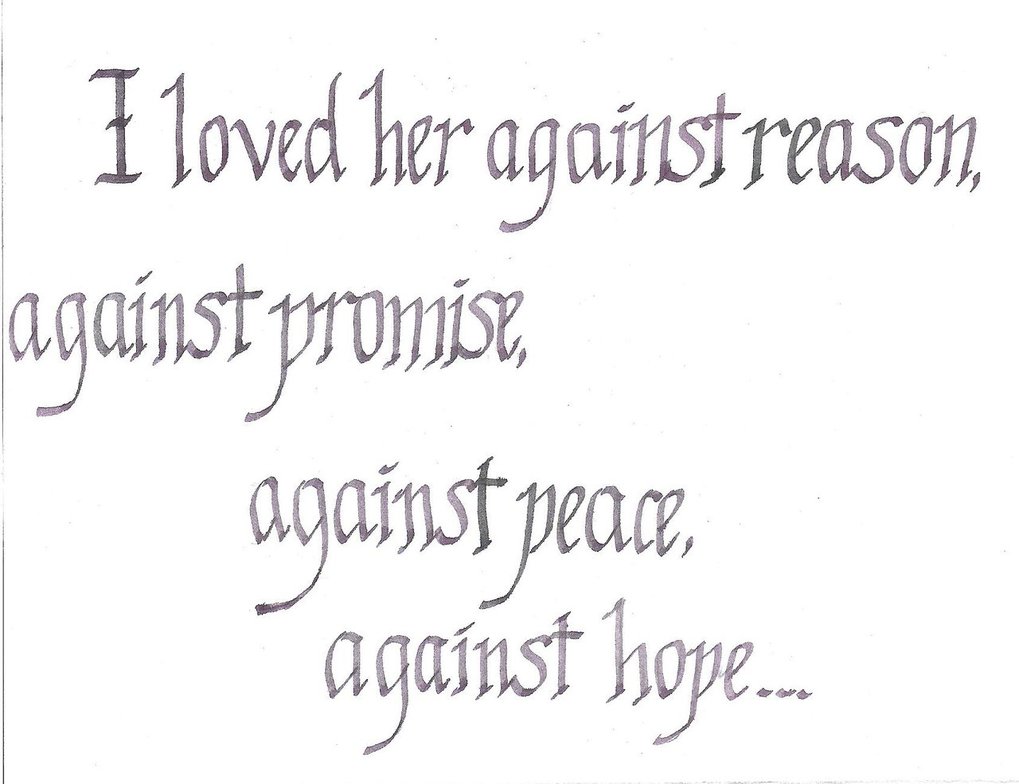 I loved her against reason,
against promise,
against peace,
against hope...